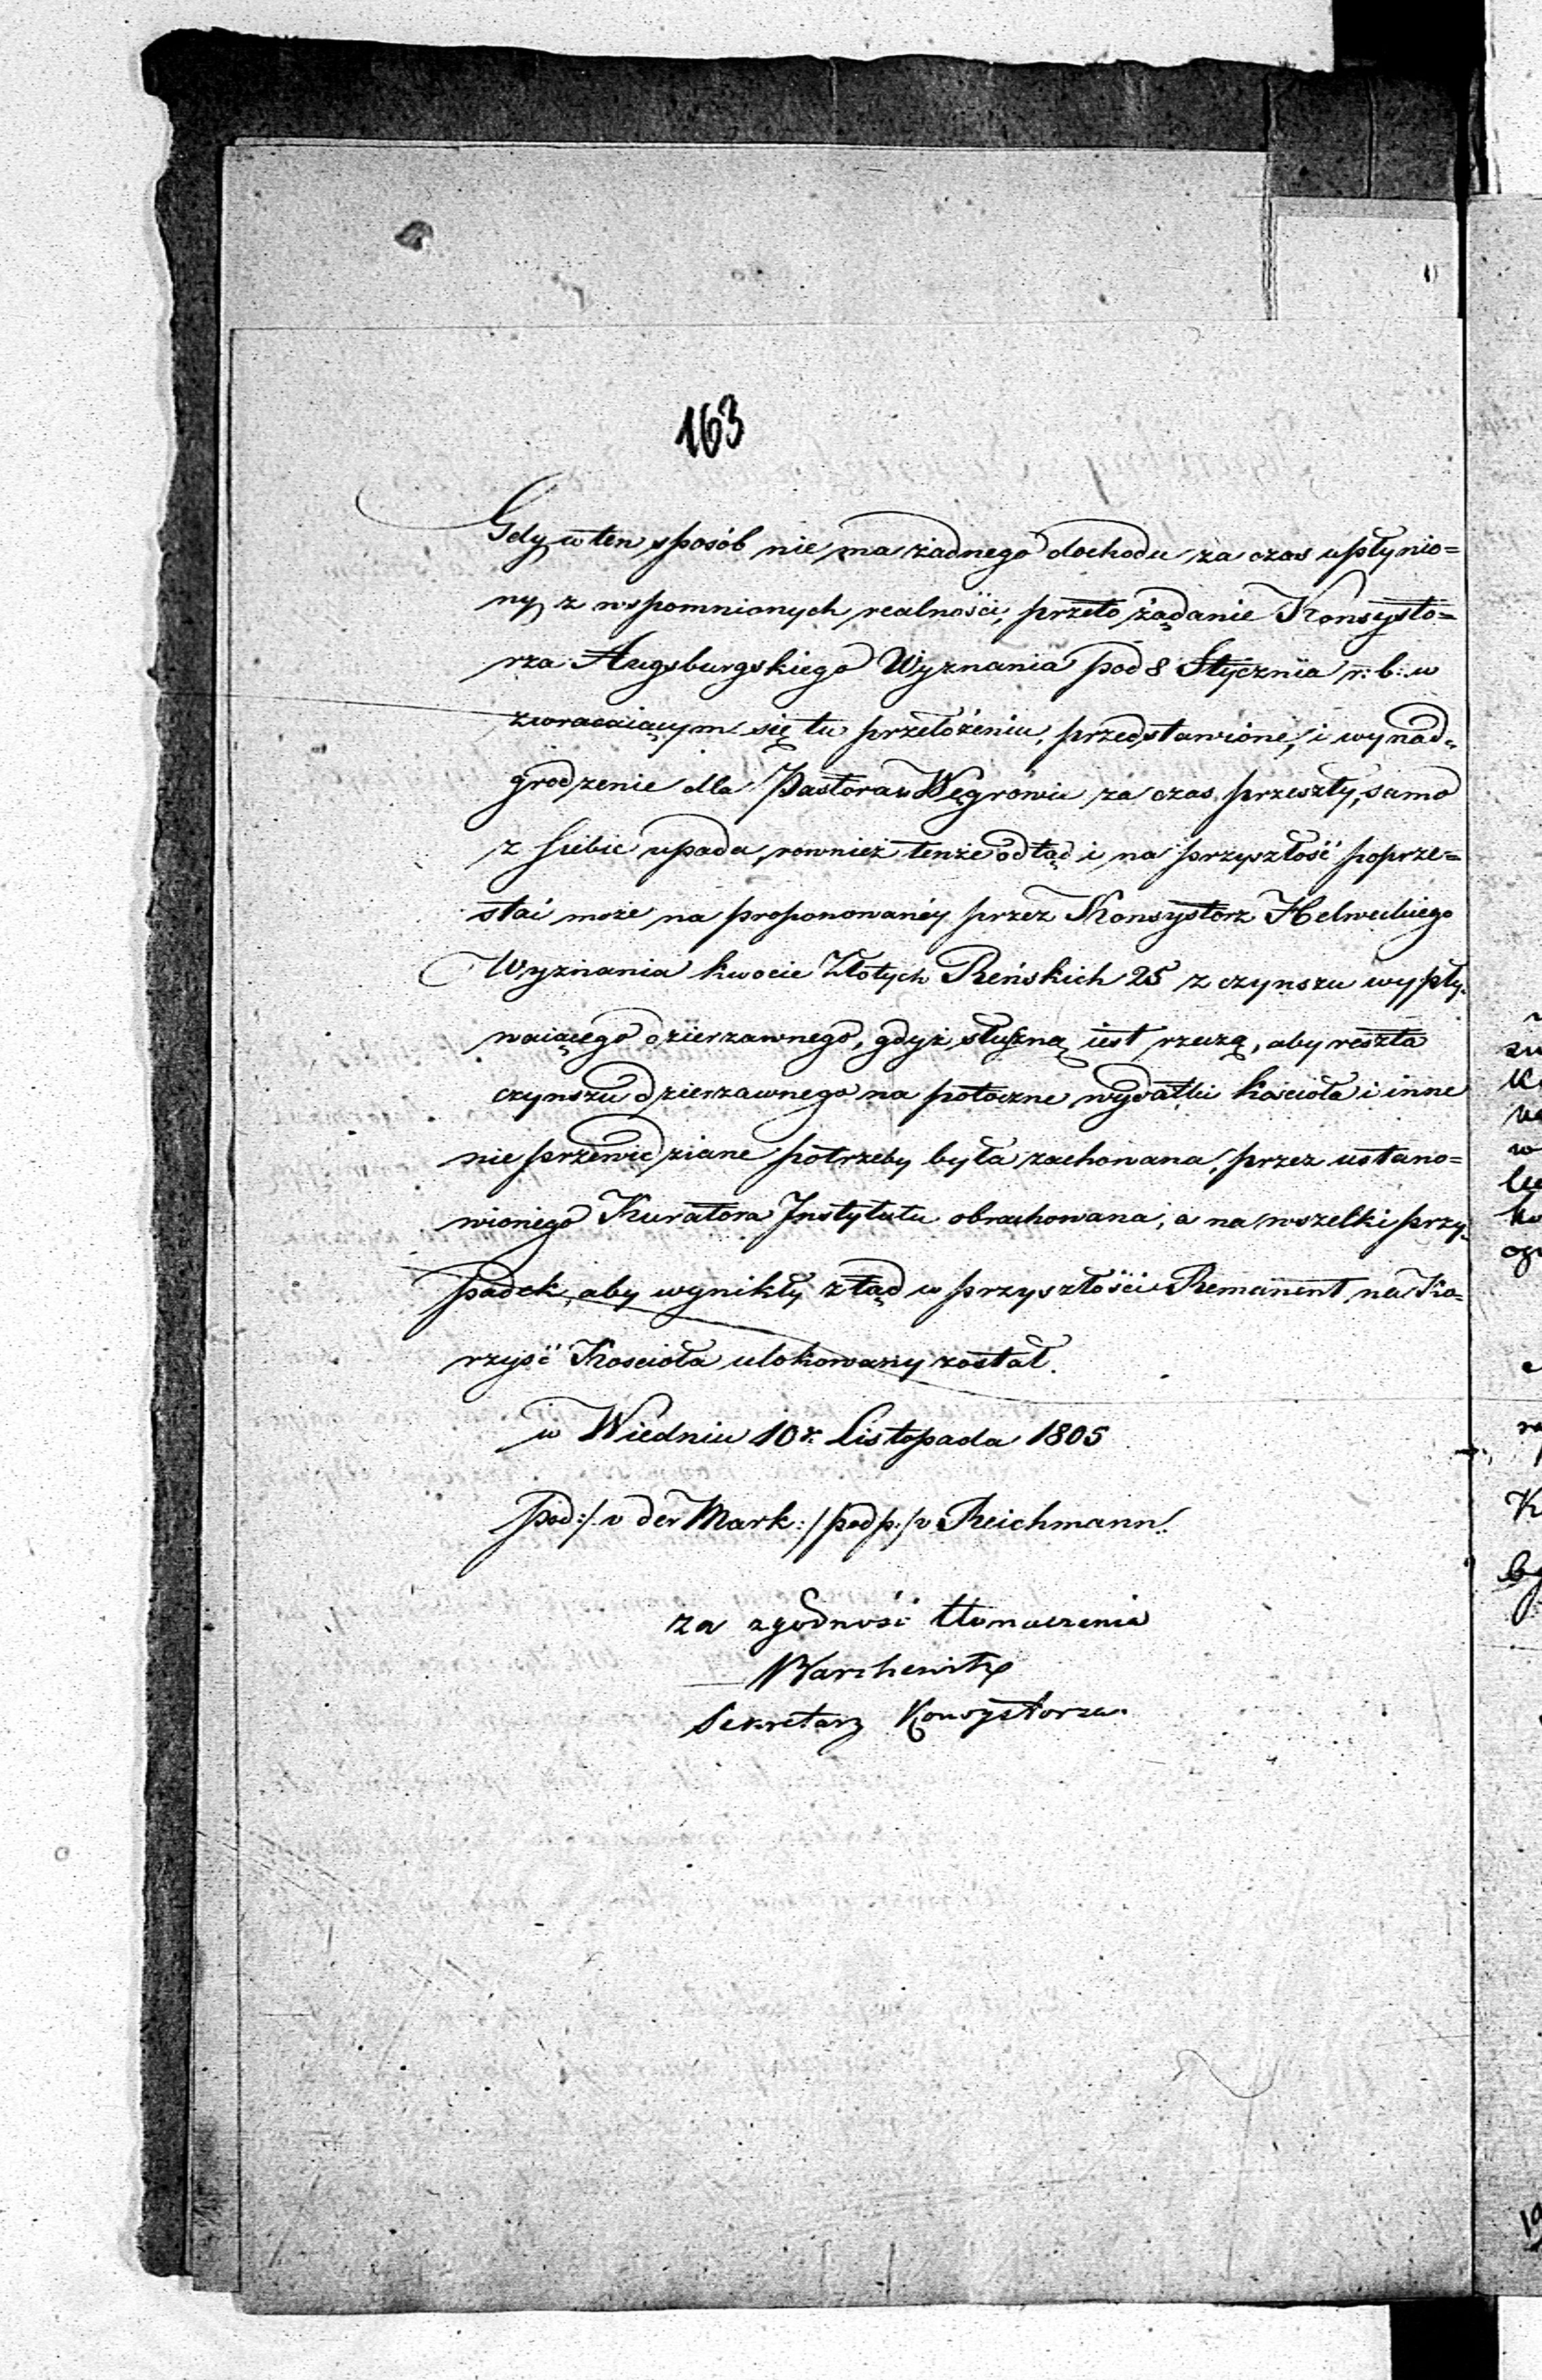 163
Gdy w ten sposób nie ma żadnego dochodu za czas upłynio=
ny z wspomnionych realności, przeto żądanie Konsysto=
rza Augsburgskiego Wyznania pod 8 Stycznia r: b: w
zwracaiącym się tu przełożeniu, przedstawione, i wynad=
grodzenie dla Pastora w Węgrowie za czas przeszły, samo
z siebie upada, rownież tenże odtąd i na przyszłość poprze=
stać może na proponowanéy przez Konsystorz Helweckiego
Wyznania kwocie Złotych Reńskich 25 z czynszu wypły=
waiącego dzierzawnego, gdyż słuszną iest rzeczą, aby reszta
czynszu dzierzawnego na potoczne wydatki kościoła i inne
nie przewidziane potrzeby była zachowana, przez ustano=
wionego Kuratora Instytutu obrachowana, a na wszelki przy=
padek, aby wynikły ztąd w przyszłości Remanent, na Ko=
rzyść Kościoła ulokowany został.
w Wiedniu 10 r. Listopada 1805
pod:/. v der Mark:/ podp:/ v Reichmann.
za zgodność tłomaczenia
Sekretarz Konsystorza.